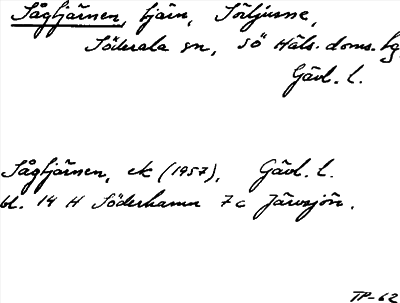 Sågtjärnen, tjärn, Sörljusne,
Söderala sn, Sö Häls. doms. hg.
Gävl. l.
Sågtjärnen, ek (1957), Gävl. l.
bl. 14 H Söderhamn 7 c Järvsjön.
TP-62